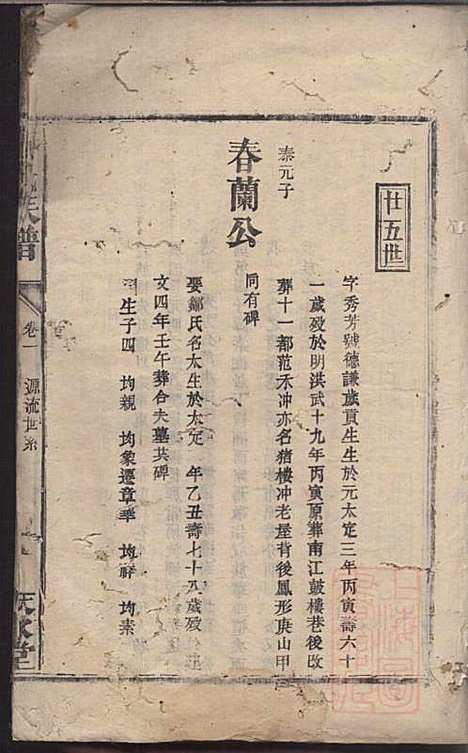 廿五世
泰元子
春蘭公
字秀芳號德謙歲貢生生於元太定三年丙寅壽六十
一歲歿於明洪武十九年丙寅原葬南江鼓樓巷後改
葬十一都范禾冲亦名猪樓冲老屋背後鳳形庚山甲
同有碑
娶鄒氏名太生於太定 年乙丑壽七十八歲歿
文四年壬午葬合夫墓共碑
生子四 均親 均象遷章華 均祥 均素
氏譜
卷一 源流世系
堂